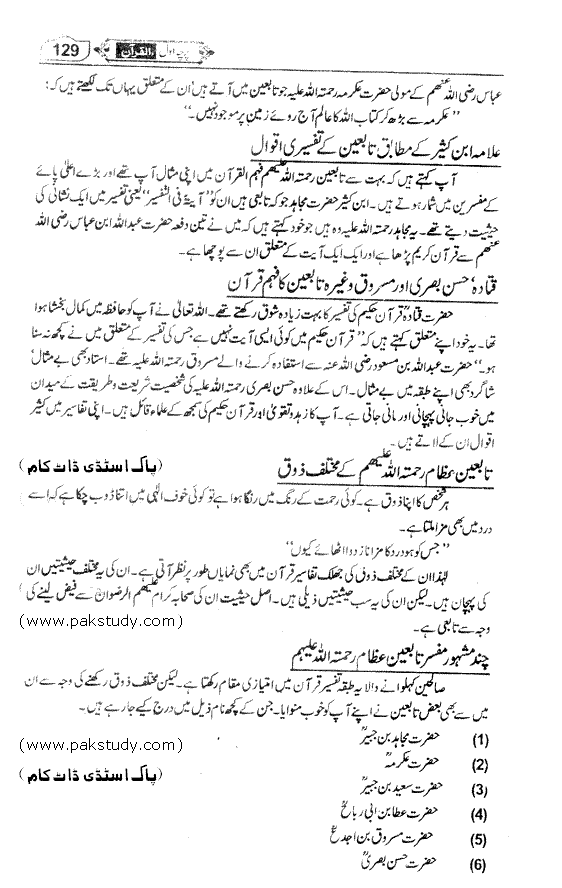 129 القرآن پرچہ اول
عباس رضی اللہ عنھم کے مولی حضرت عکرمہ رحمتہ اللہ علیہ جو تابعین میں آتے ہیں' ان کے متعلق یہاں تک لکھتے ہیں کہ:
”عکرمہ سے بڑھ کر کتاب اللہ کا عالم آج روئے زمین پر موجود نہیں۔“
علامہ ابن کثیر کے مطابق تابعین کے تفسیری اقوال
آپ کہتے ہیں کہ بہت سے تابعین رحمتہ اللہ علیھم فہم القرآن میں اپنی مثال آپ تھے اور بڑے اعلیٰ پائے
کے مفسرین میں شمار ہوتے ہیں۔ ابن کثیر حضرت مجاہد جو کہ تابعی ہیں ان کو ”آیۃ فی التفسیر“ یعنی تفسیر میں ایک نشانی کی
حیثیت دیتے تھے۔ یہ مجاہد رحمتہ اللہ علیہ وہ ہیں جو خود کہتے ہیں کہ میں نے تین دفعہ حضرت عبداللہ ابن عباس رضی اللہ
عنھم سے قرآن کریم پڑھا ہے اور ایک ایک آیت کے متعلق ان سے پوچھا ہے۔
قتادہ' حسن بصری اور مسروق وغیرہ تابعین کا فہم قرآن
حضرت قتادہؒ قرآن حکیم کی تفسیر کا بہت زیادہ شوق رکھتے تھے۔ اللہ تعالیٰ نے آپ کو حافظہ میں کمال بخشا ہوا
تھا۔ یہ خود اپنے متعلق کہتے ہیں کہ ”قرآن حکیم میں کوئی ایسی آیت نہیں ہے جس کی تفسیر کے متعلق میں نے کچھ نہ سنا
ہو۔“ حضرت عبداللہ بن مسعود رضی اللہ عنہ سے استفادہ کرنے والے مسروق رحمتہ اللہ علیہ تھے۔ استاد بھی بے مثال'
شاگرد بھی اپنے طبقہ میں بے مثال۔ اس کے علاوہ حسن بصری رحمتہ اللہ علیہ کی شخصیت شریعت و طریقت کے میدان
میں خوب جانی پہچانی اور مانی جاتی ہے۔ آپ کا زہد و تقویٰ اور قرآن حکیم کی سمجھ کے علماء قائل ہیں۔ اپنی تفاسیر میں کثیر
اقوال ان کے لاتے ہیں۔
تابعین عظام رحمتہ اللہ علیھم کے مختلف ذوق (پاک اسٹڈی ڈاٹ کام)
ہر شخص کا اپنا ذوق ہے۔ کوئی رحمت کے رنگ میں رنگا ہوا ہے تو کوئی خوف الٰہی میں اتنا ڈوب چکا ہے کہ اسے
درد میں بھی مزا ملتا ہے۔
”جس کو ہو درد کا مزا ناز دوا اٹھائے کیوں“
لہٰذا ان کے مختلف ذوق کی جھلک تفاسیر قرآن میں بھی نمایاں طور پر نظر آتی ہے۔ ان کی یہ مختلف حیثیتیں ان
کی پہچان ہیں۔ لیکن ان کی یہ سب حیثیتیں ذیلی ہیں۔ اصل حیثیت ان کی صحابہ کرام علیھم الرضوان سے فیض لینے کی
وجہ سے تابعی ہے۔ (www.pakstudy.com)
چند مشہور مفسر تابعین عظام رحمتہ اللہ علیہم
صالحین کہلوانے والا یہ طبقہ تفسیر قرآن میں امتیازی مقام رکھتا ہے۔ لیکن مختلف ذوق رکھنے کی وجہ سے ان
میں سے بھی بعض تابعین نے اپنے آپ کو خوب منوایا۔ جن کے کچھ نام ذیل میں درج کیے جا رہے ہیں۔
(1) حضرت مجاہد بن جبیرؒ (www.pakstudy.com)
(2) حضرت عکرمہؒ
(3) حضرت سعید بن جبیرؒ (پاک اسٹڈی ڈاٹ کام)
(4) حضرت عطا بن ابی رباحؒ
(5) حضرت مسروق بن اجدعؒ
(6) حضرت حسن بصریؒ